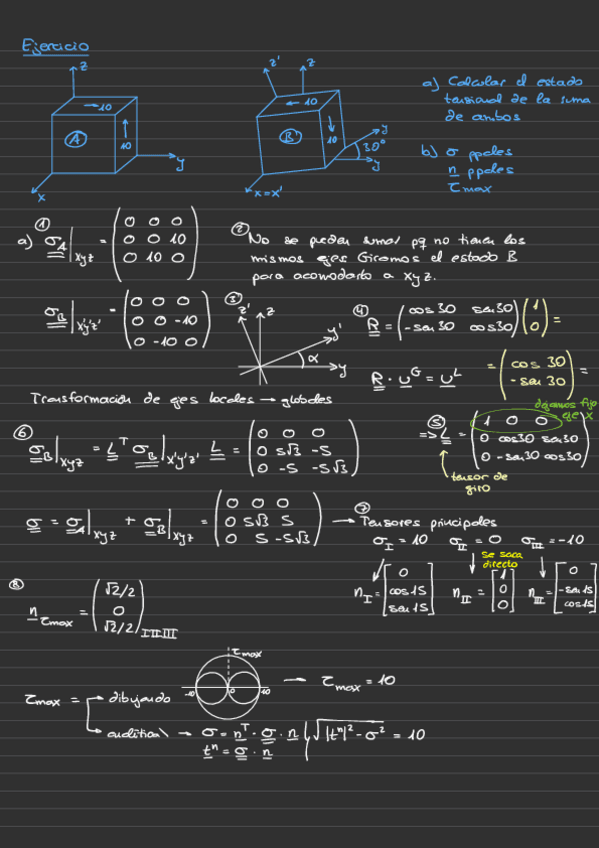 Ejercicio
z
10
10
A
y
x
z' z
10
10
B
y
30°
y
x=x'
a) Calcular el estado
tensional de la suma
de ambos
b) σ ppales
n ppales
τmax
①
a) σA|xyz = (0 0 0
0 0 10
0 10 0)
② No se pueden sumar pq no tienen los
mismos ejes Giramos el estado B
para acomodarlo a xyz.
σB|x'y'z' = (0 0 0
0 0 -10
0 -10 0)
③
z' z
y'
α
y
④
R = (cos 30 sen 30
-sen 30 cos 30) (1
0) =
R · u^G = u^L
= (cos 30
-sen 30) =
Transformación de ejes locales → globales
dejamos fijo
eje x
⑤
=> L = (1 0 0
0 cos30 sen30
0 -sen30 cos30)
tensor de
giro
⑥
σB|xyz = L^T σB|x'y'z' L = (0 0 0
0 5√3 -5
0 -5 -5√3)
σ = σA|xyz + σB|xyz = (0 0 0
0 5√3 5
0 5 -5√3)
⑦
→ Tensores principales
σI = 10 σII = 0 σIII = -10
se saca
directo
nI = [0
cos15
sen15]
nII = [1
0
0]
nIII = [0
-sen15
cos15]
⑧
nτmax = (√2/2
0
√2/2) I II III
τmax
-10 0 10
→ τmax = 10
τmax = → dibujando
→ analítica → σ = n^T · σ · n
t^n = σ · n
√|t^n|² - σ² = 10